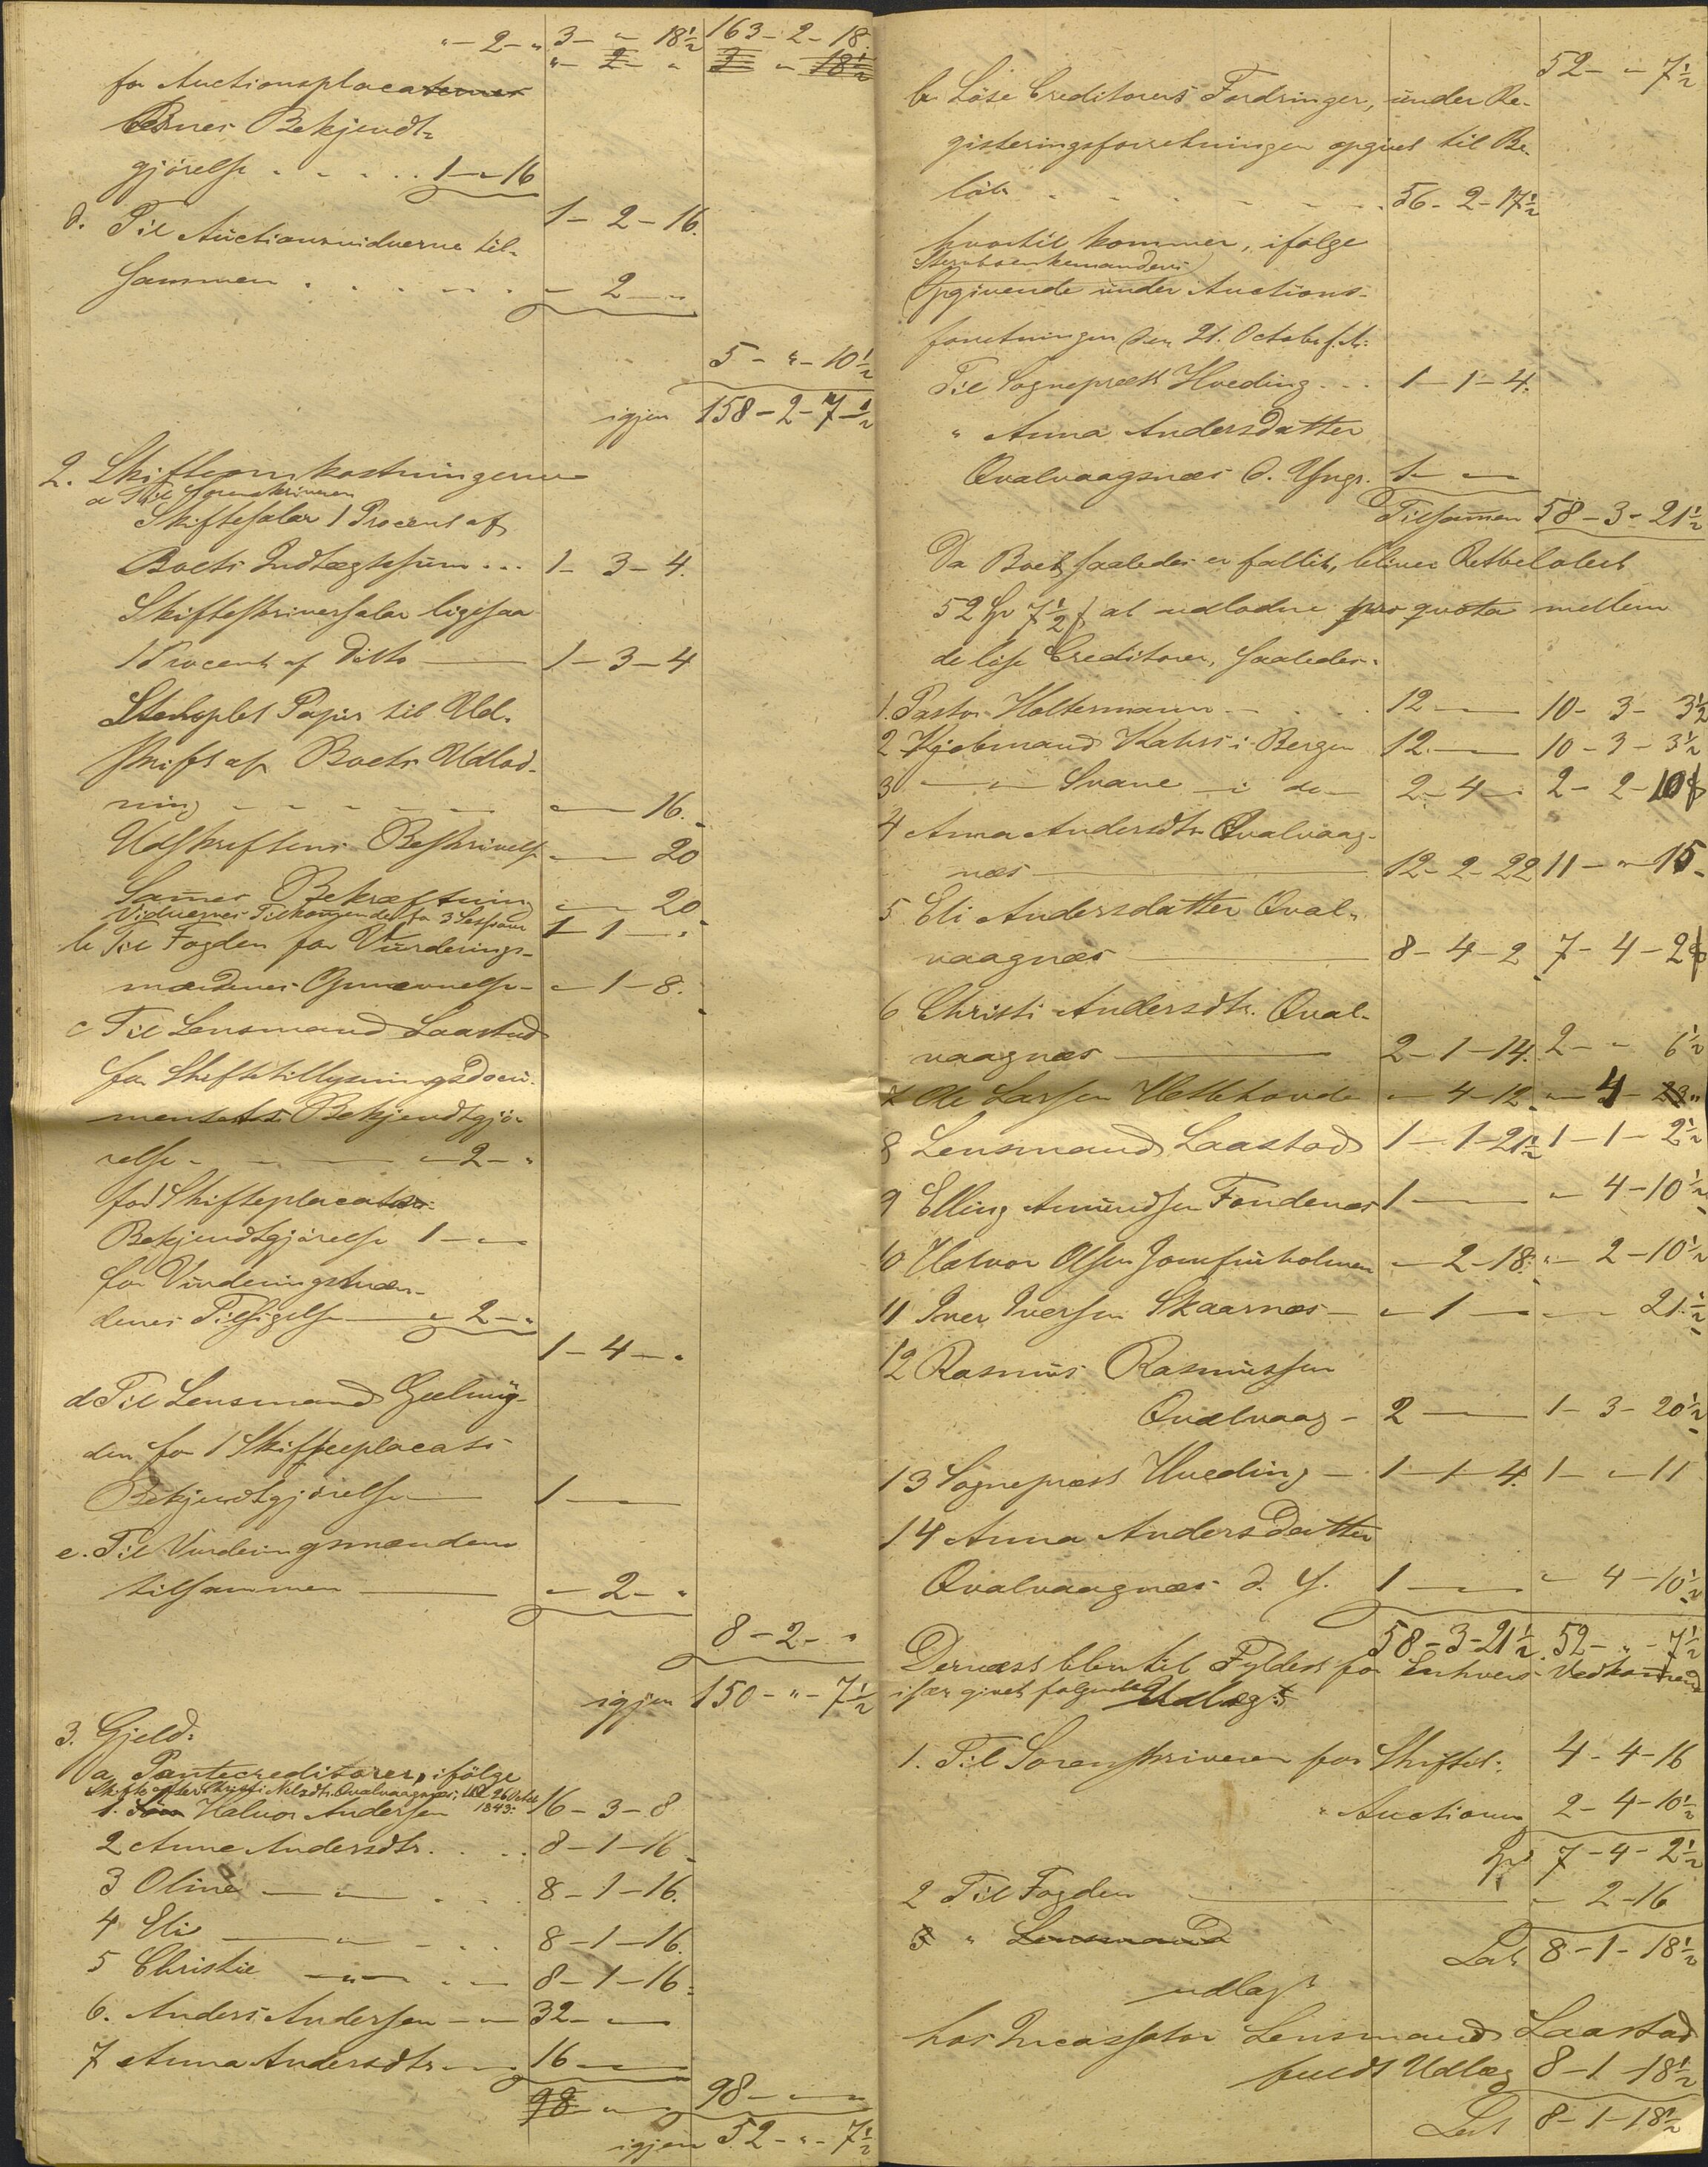 "-2-" 3-"-18½ 163-2-18
"-2-" 3 " 18½
for Auctionsplaca
Bekjendt-
gjörelse . . . . . 1-"-16
1-2-16.
d. Til Auctionsvidnerne til-
sammen . . . . . . -2-"
5-"-10½
igjen 158-2-7½
2. Skifteomkostningerne
a Til Sorenskriveren
Skiftesalær 1 Procent af
Boets Indtægtssum . . . 1-3-4.
Skifteskriversalær ligesaa
1 Procent af Ditto 1-3-4
Stemplet Papir til Ud-
skrift af Boets Udlod-
ning - - - - - - "-"-16.
Udskriftens Beskrivelse "-"-20
Sammes Bekræftning "-"-20
Vidnernes Tilkommende for 3 Sessioner 1-1-"
b Til Fogden for Vurderings-
mændenes Opnævnelse - "-1-8.
c Til Lensmand Laastad
for Skiftetillysningsdocu-
mentets Bekjendtgjö-
relse - - - "-2-"
for Skifteplacat
Bekjendtgjörelse 1-"-"
for Vurderingsmæn-
denes Tilsigelse "-2-"
1-4-"
d Til Lensmand Gjelmy-
den for 1 Skifteplacats
Bekjendtgjörelse 1-"-"
e. Til Vurderingsmændene
tilsammen "-2-"
8-2-"
igjen 150-"-7½
3. Gjeld:
a Pantecreditorer, ifölge
Skifte efter Christi Nilsdtr. Qvalvaagnæs; 26 Octbr 1843:
1. Halvor Andersen 16-3-8
2 Anne Andersdtr. . . . 8-1-16
3 Oline -"- . . . 8-1-16.
4 Eli -"- . . . 8-1-16.
5 Christie -"- . . . 8-1-16.
6. Anders Andersen - 32-"-"
7 Anna Andersdtr. - 16-"-"
98-"-" 98-"-"
igjen 52-"-7½
52-"-7½
b Löse Creditorers Fordringer, under Re-
gisteringsforretningen opgivet til Be-
löb . . . . . . 56-2-17½
hvortil kommer, ifölge
Sterboenkemandens
Opgivende under Auctions-
forretningen den 21. October f. A:
Til Sognepræst Hveding . . . 1-1-4.
" Anna Andersdatter
Qvalvaagnæs d. Yngr. 1-"-"
Tilsammen 58-3-21½
Da Boet saaledes er fallit, bliver Restbelöbet
52 Spd 7½ s at udlodne pro qvota mellem
de löse Creditorer, saaledes:
1. Pastor Holtermann - . . . 12-"-" 10-3-3½
2 Kjöbmand Kahrs i Bergen 12-"-" 10-3-3½
3 -"- Svane i do 2-4-" 2-2-10
4 Anna Andersdtr. Qvalvaag-
næs 12-2-22 11-"-15
5 Eli Andersdatter Qval-
vaagnæs 8-4-2 7-4-2
6 Christi Andersdtr. Qval-
vaagnæs 2-1-14. 2-"-6½
7 Ole Larsen "-4-12 "-4-"
8 Lensmand Laastad 1-1-21½ 1-1-2½
9 Elling Amundsen Fondenæs 1-"-" "-4-10½
10 Halvor Olsen Jomfruholmen "-2-18. "-2-10½
11 Iver Iversen Skaarnæs - "-1-" "-"-21½
12 Rasmus Rasmussen
Qvalvaag - 2-"-" 1-3-20½
13 Sognepræst Hveding - 1-1-4. 1-"-11
14 Anna Andersdatter
Qvalvaagnæs d. Y. 1-"-" "-4-10½
58-3-21½ 52-"-7½
Dernæst blev til Fyldest for Enhvers Vedkommende
især givet fölgende Udlæg:
1. Til Sorenskriveren for Skiftet: 4-4-16
" Auctionen 2-4-10½
Spd 7-4-2½
2 Til Fogden "-2-16
3 " Lensmand
Lat. 8-1-18½
udlagt
hos Incassator Lensmand Laastad
fuldt Udlæg 8-1-18½
Lat 8-1-18½